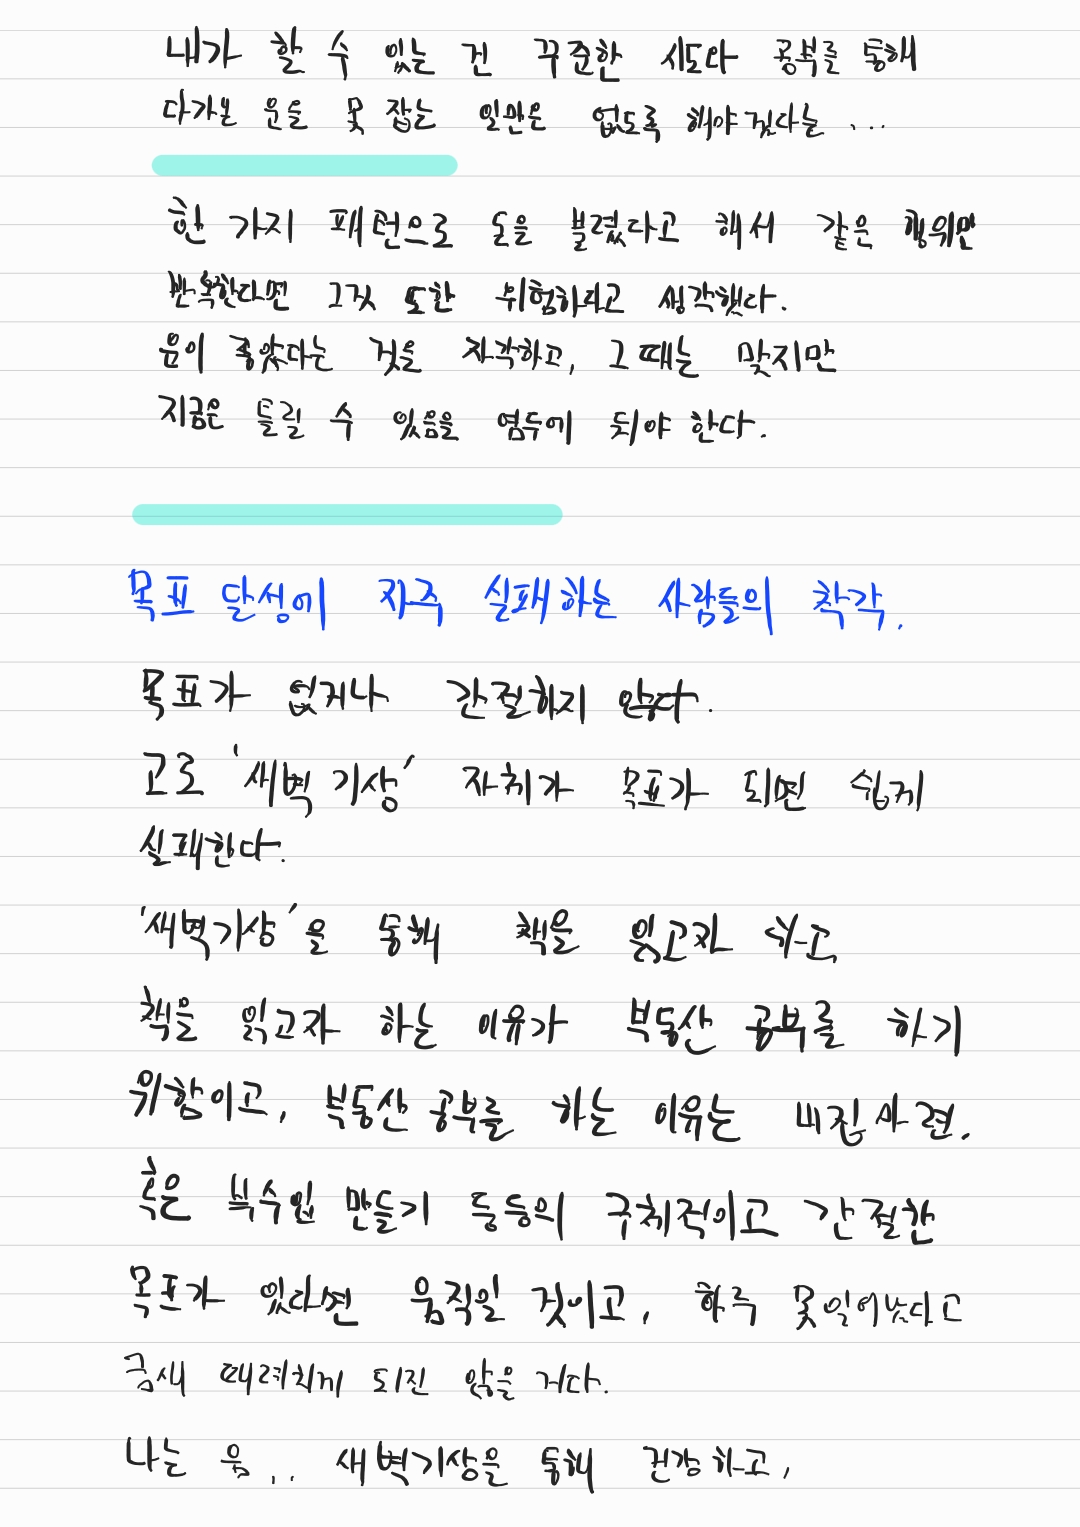 내가 할 수 있는 건 꾸준한 시도나 공부를 통해
다가온 운을 못 잡는 일만은 없도록 해야겠다는 ....
한 가지 패턴으로 돈을 불렸다고 해서 같은 행위만
반복한다면 그것 또한 위험하다고 생각했다.
운이 좋았다는 것을 자각하고, 그 때는 맞지만
지금은 틀릴 수 있음을 염두에 둬야 한다.
목표 달성에 자주 실패하는 사람들의 착각.
목표가 없거나 간절하지 않다.
고로 '새벽 기상' 자체가 목표가 되면 쉽게
실패한다.
'새벽기상'을 통해 책을 읽고자 하고,
책을 읽고자 하는 이유가 부동산 공부를 하기
위함이고, 부동산 공부를 하는 이유는 내집 마련.
혹은 부수입 만들기 등등의 구체적이고 간절한
목표가 있다면 움직일 것이고, 하루 못일어났다고
금새 때려치게 되진 않을 거다.
나는 음... 새벽기상을 통해 건강하고,